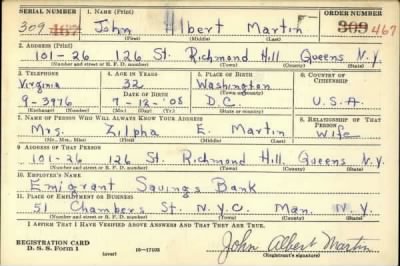 SERIAL NUMBER 1. NAME (Print) ORDER NUMBER
309 467 John Albert Martin 309 467
(First) (Middle) (Last)
2. ADDRESS (Print)
101-26 126 St. Richmond Hill Queens N.Y.
(Number and street or R. F. D. number) (Town) (County) (State)
3. TELEPHONE 4. AGE IN YEARS 5. PLACE OF BIRTH 6. COUNTRY OF CITIZENSHIP
Virginia 32 Washington
DATE OF BIRTH (Town or county)
9-3976 7-12-'08 D.C. U.S.A
(Exchange) (Number) (Mo.) (Day) (Yr.) (State or country)
7. NAME OF PERSON WHO WILL ALWAYS KNOW YOUR ADDRESS 8. RELATIONSHIP OF THAT PERSON
Mrs. Zilpha E. Martin Wife
(Mr., Mrs., Miss) (First) (Middle) (Last)
9. ADDRESS OF THAT PERSON
101-26 126 St. Richmond Hill Queens N.Y.
(Number and street or R. F. D. number) (Town) (County) (State)
10. EMPLOYER'S NAME
Emigrant Savings Bank
11. PLACE OF EMPLOYMENT OR BUSINESS
51 Chambers St N.Y.C. Man. N.Y.
(Number and street or R. F. D. number) (Town) (County) (State)
I AFFIRM THAT I HAVE VERIFIED ABOVE ANSWERS AND THAT THEY ARE TRUE.
REGISTRATION CARD
D. S. S. Form 1 (over) 16-17105 John Albert Martin